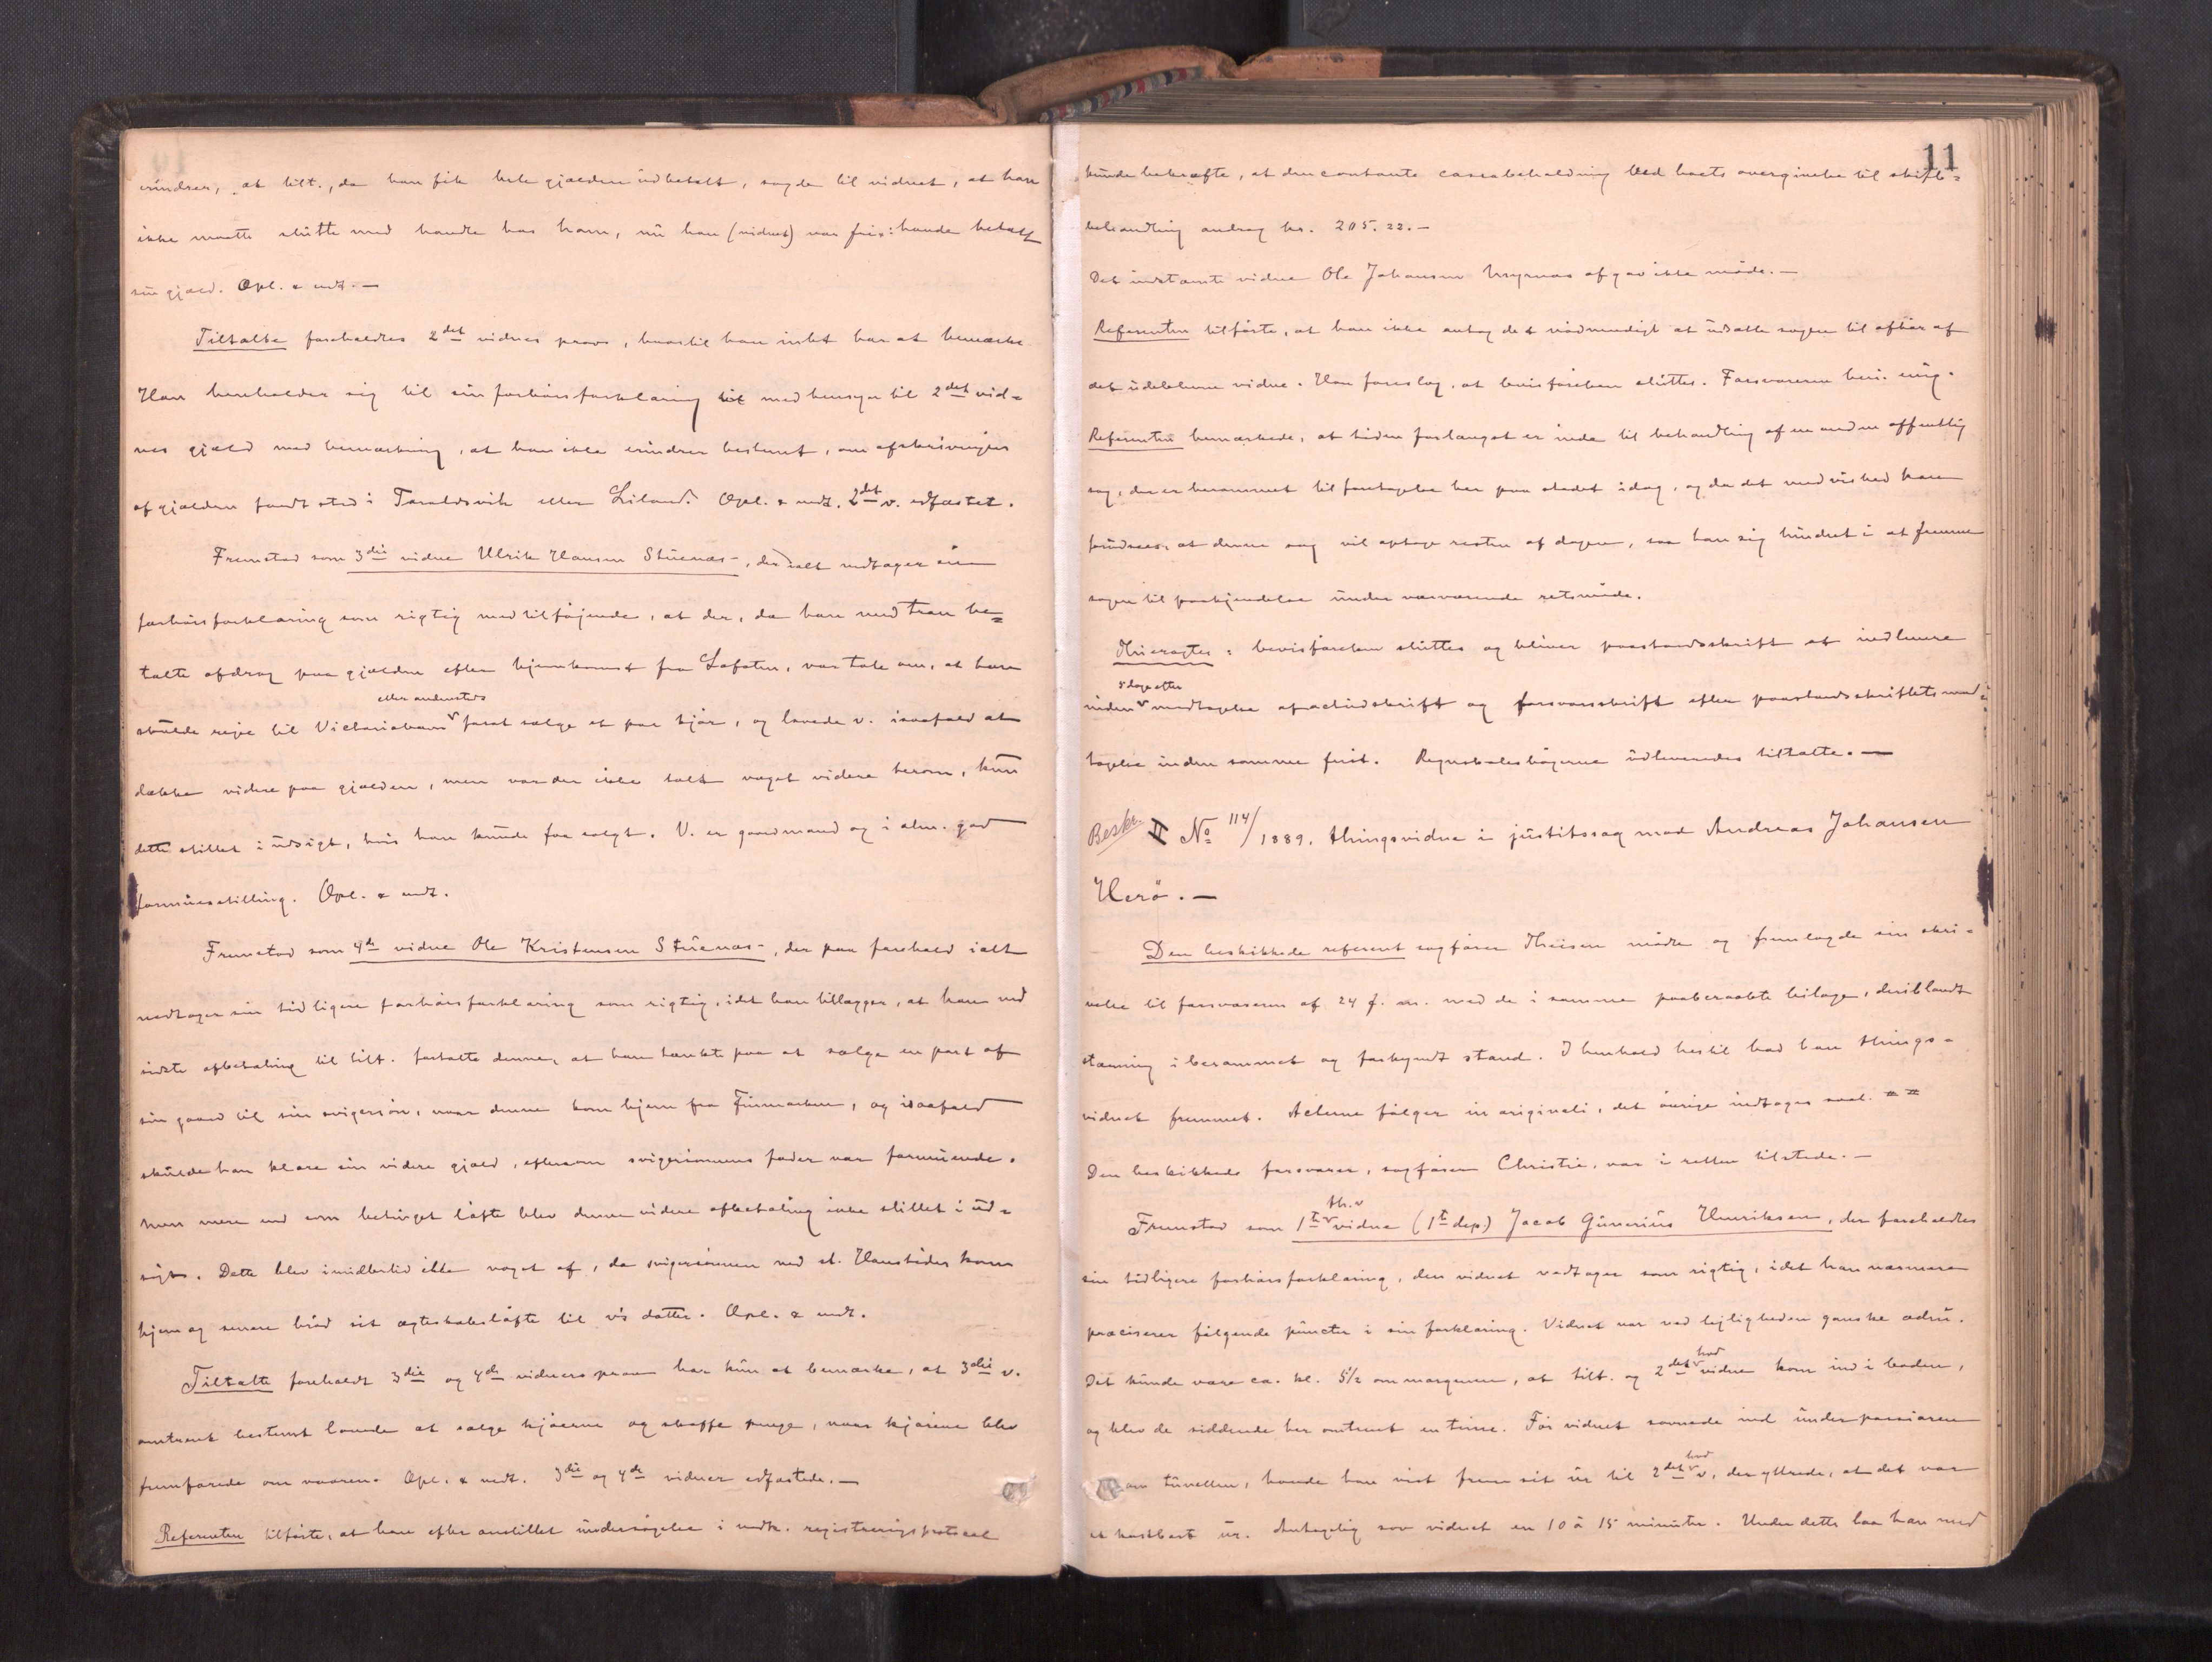 erindrer, at tilt., da han fik hele gjælden udbetalt, sagde til vidnet, at han
ikke maatte slutte med handle hos ham, nu han (vidnet) var fri ɔ: havde betalt
sin gjæld. Opl. & vedt. —
Tiltalte foreholdtes 2det vidnes prov, hvortil han intet har at bemærke
Han henholder sig til sin forhörsforklaring med hensyn til 2det vid-
nes gjæld med bemærkning, at han ikke erindrer bestemt, om afskrivningen
af gjælden fandt sted i Taraldsvik eller Liland. Opl. & vedt. 2det v. edfæstet.
Fremstod som 3die vidne Ulrik Hansen Stuenæs —, der ialt vedtager sin
forhörsforklaring som rigtig med tilföjende, at der, da han med tran be-
talte afdrag paa gjælden efter hjemkomst fra Lofoten, var tale om, at han
eller andensteds
skulde rejse til Victoriahavn forat sælge et par kjör, og lovede v. isaafald at
dække videre paa gjælden, men var der ikke talt noget videre herom, kun
dette stillet i udsigt, hvis han kunde faa solgt. V. er gaardmand og i alm. god
formuesstilling. Opl. & vedt.
Fremstod som 4de vidne Ole Kristensen Stuenæs —, der paa forehold ialt
vedtager sin tidligere forhörsforklaring som rigtig, idet han tillægger, at han ved
sidste afbetaling til tilt. fortalte denne, at han tænkte paa at sælge en part af
sin gaard til sin svigersön, naar denne kom hjem fra Finmarken, og isaafald
skulde han klare sin videre gjæld, eftersom svigersönnens fader var formuende.
Men mere end som betinget löfte blev denne videre afbetaling ikke stillet i ud-
sigt. Dette blev imidlertid ikke noget af, da svigersönnen ved st. Hanstider kom
hjem og senere bröd sit ægteskabslöfte til v's datter. Opl. & vedt.
Tiltalte foreholdt 3die og 4de vidners prov har kun at bemærke, at 3die v.
omtrent bestemt lovede at sælge kjörene og skaffe penge, naar kjörene blev
fremförede om vaaren. Opl. & vedt. 3die og 4de vidner edfæstede. —
Referenten tilförte, at han efter anstillet undersögelse i vedk. registreringsprotocol
11
kunde bekræfte, at den contante cassabeholdning ved boets overgivelse til skifte-
behandling androg kr. 205.22. —
Det indstævnte vidne Ole Johansen afgav ikke möde. —
Referenten tilförte, at han ikke antog det nödvendigt at udsætte sagen til afhör af
det udeblevne vidne. Han foreslog, at bevisförelsen sluttes. Forsvareren heri enig.
Referenten bemærkede, at tiden forlængst er inde til behandling af en anden offentlig
sag, der er berammet til foretagelse her paa stedet idag, og da det med vished kan
forudsees, at denne sag vil optage resten af dagen, saa han sig hindret i at fremme
sagen til paakjendelse under nærværende retsmöde.
Thi eragtes: bevisförelsen sluttes og bliver paastandsskrift at indlevere
8 dage efter
inden modtagelse af actudskrift og forsvarsskrift efter paastandsskriftets mod-
tagelse inden samme frist. Regnskabsbögerne udleveredes tiltalte. —
Beskr. II No 114/1889. Thingsvidne i justitssag mod Andreas Johansen
Herö. —
Den beskikkede referent sagförer Theisen mödte og fremlagde sin skri-
velse til forsvareren af 24 f. m. med de i samme paaberaabte bilage, deriblandt
stævning i berammet og forkyndt stand. I henhold hertil bad han things-
vidnet fremmet. Acterne fölger in originali, det övrige indtages saal.
Den beskikkede forsvarer, sagförer Christie, var i retten tilstede. —
th.
Fremstod som 1te vidne (1te dep.) Jacob Gunerius Henriksen, der foreholdtes
sin tidligere forhörsforklaring, den vidnet vedtager som rigtig, idet han nærmere
præciserer fölgende puncter i sin forklaring. Vidnet var ved lejligheden ganske ædru.
hod
Det kunde være ca. kl. 5½ om morgenen, at tilt. og 2det vidne kom ind i boden,
og blev de siddende her omtrent en time. För vidnet sovnede ind under passiaren
hod
om tuvellen, havde han vist frem sit ur til 2det v., der yttrede, at det var
et kostbart ur. Antagelig sov vidnet en 10 à 15 minuter. Under dette laa han med